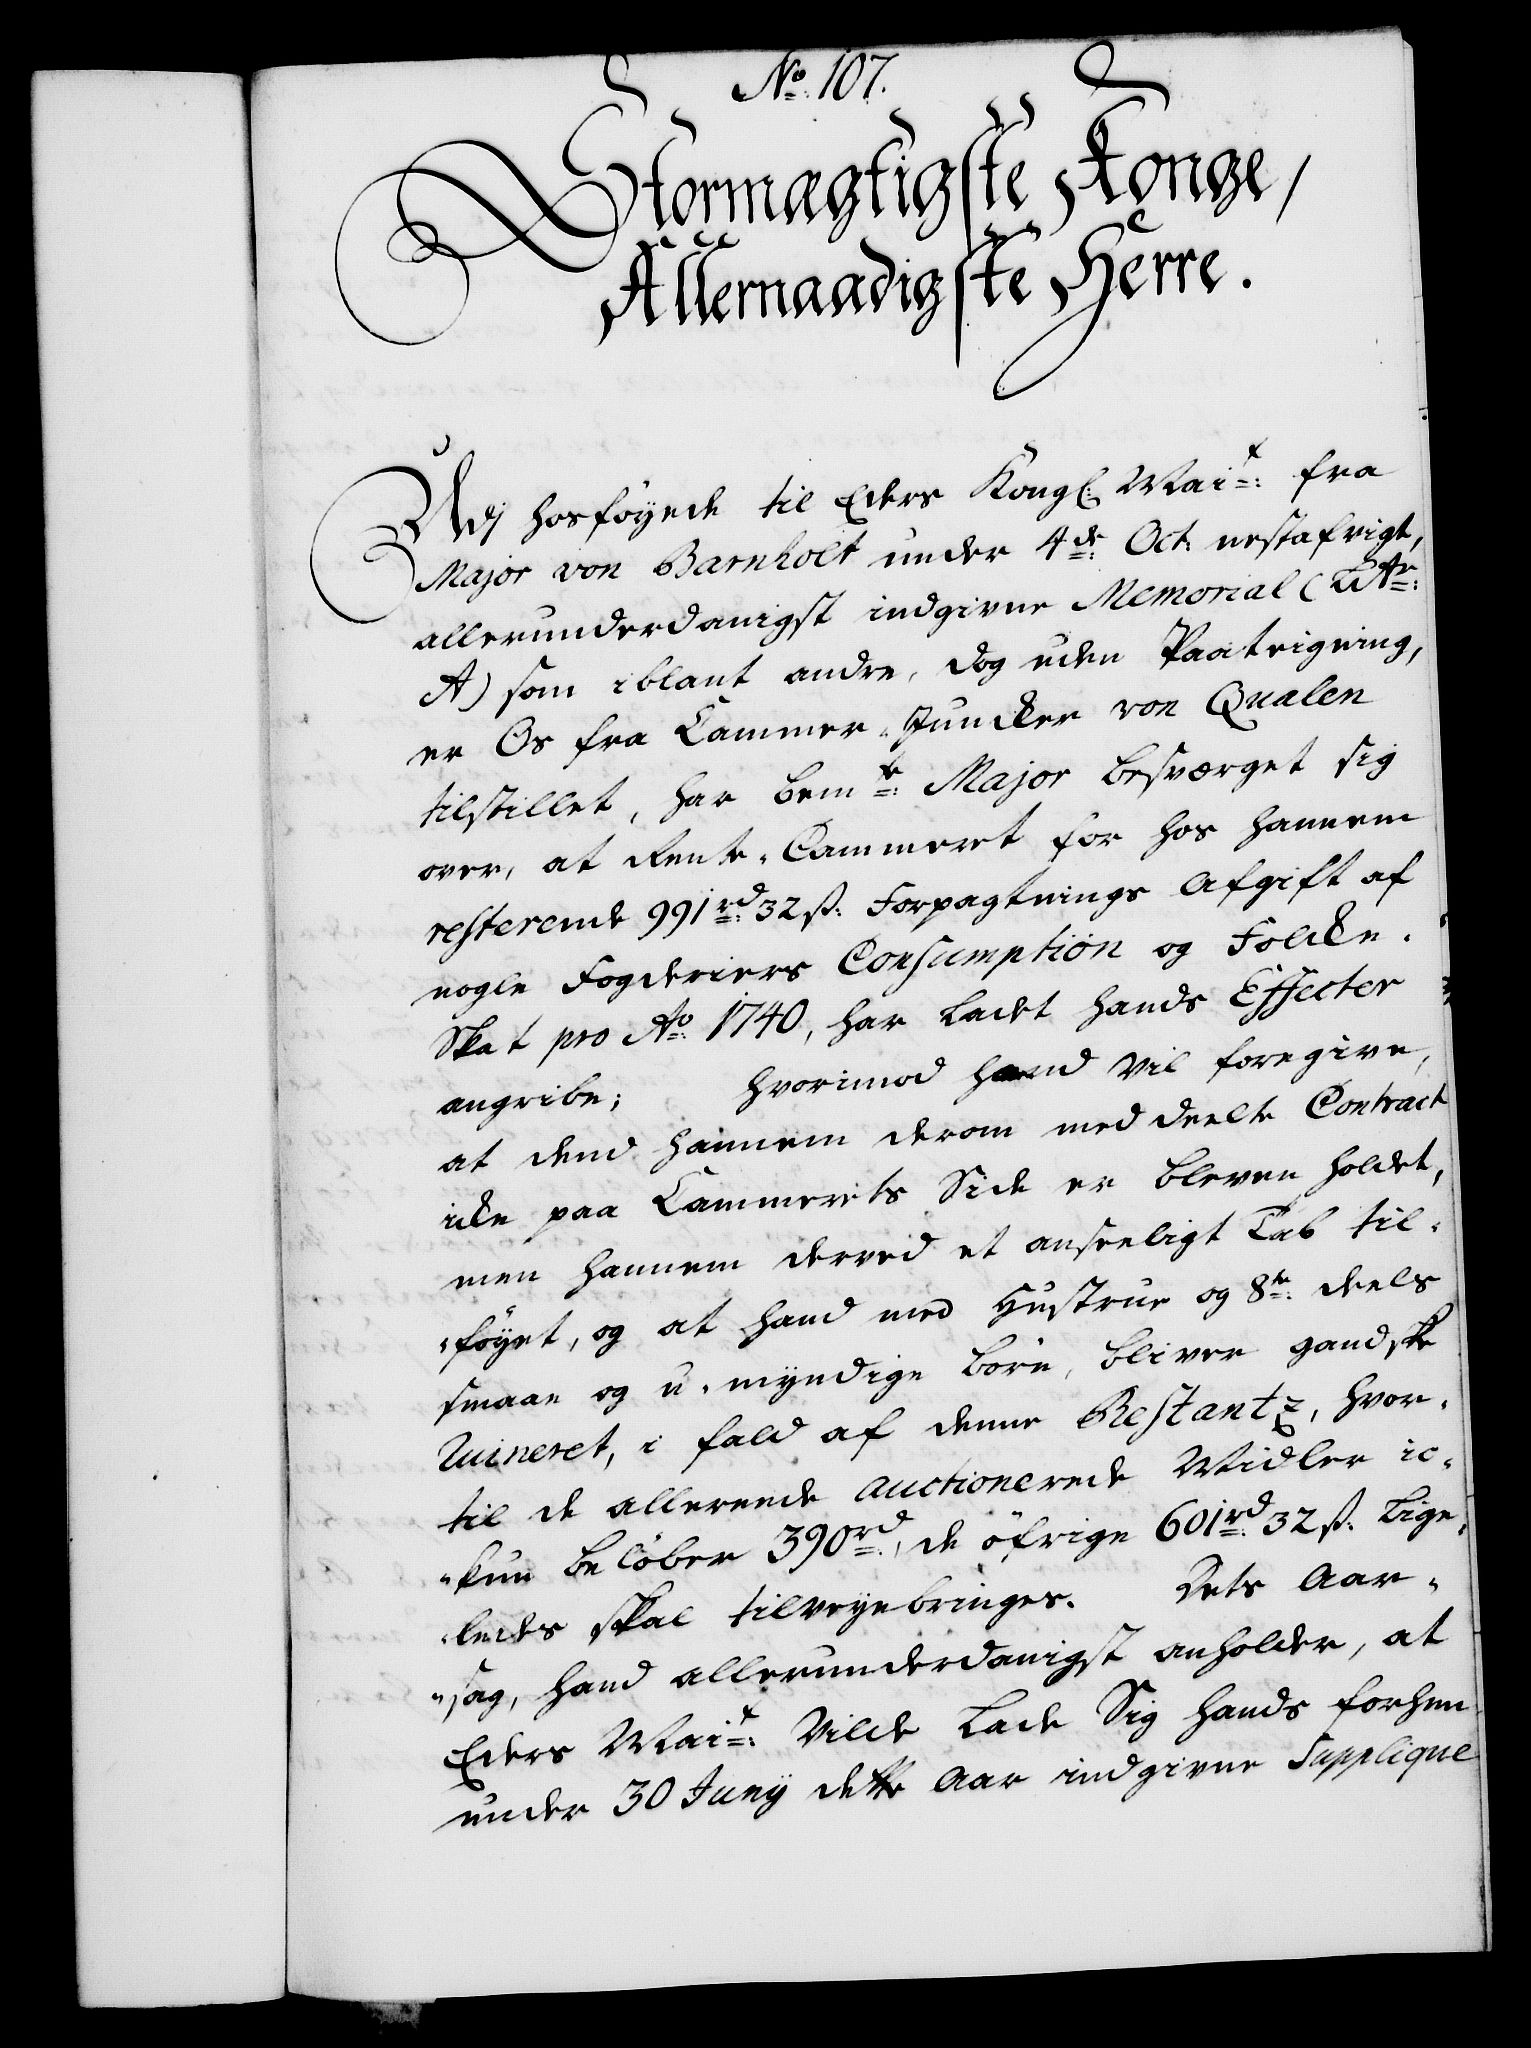 No. 107.
Stormægtigste Konge,
Allernaadigste Herre.
Udj hosføyede til Eders Kongl: Mait: fra
Major von Barnholt under 4de: Oct: nestafvigt,
allerunderdanigst indgivne Memorial (Litr:
A) som iblant andre, dog uden Paateigning,
er Os fra Cammer-Juncker von Qualen
tilstillet, har bemte: Major besværget sig
over, at Rente-Cammeret for hos hannem
resterende 991rd: 32ß: Forpagtnings Afgift af
nogle Fogderiers Consumption og Folcke-
Skat pro Ao: 1740, har ladet hands Effecter
angribe; hvorimod hand vil foregive,
at dend hannem derom meddeelte Contract
icke paa Cammerets Side er bleven holdet,
men hannem derved et anseeligt Tab til-
føyet, og at hand med Hustrue og 8te: deels
smaae og u-myndige börn, bliver gandske
Ruineret, i fald af denne Restantz, hvor-
til de allereede auctionerede Midler ic-
kun belöber 390rd:, de öfrige 601rd: 32ß: Lige-
ledes skal tilveyebringes. Dets Aar-
sag, hand allerunderdanigst anholder, at
Eders Mait: Vilde Lade Sig hands forhen
under 30 Juny dette Aar indgivne Supplique